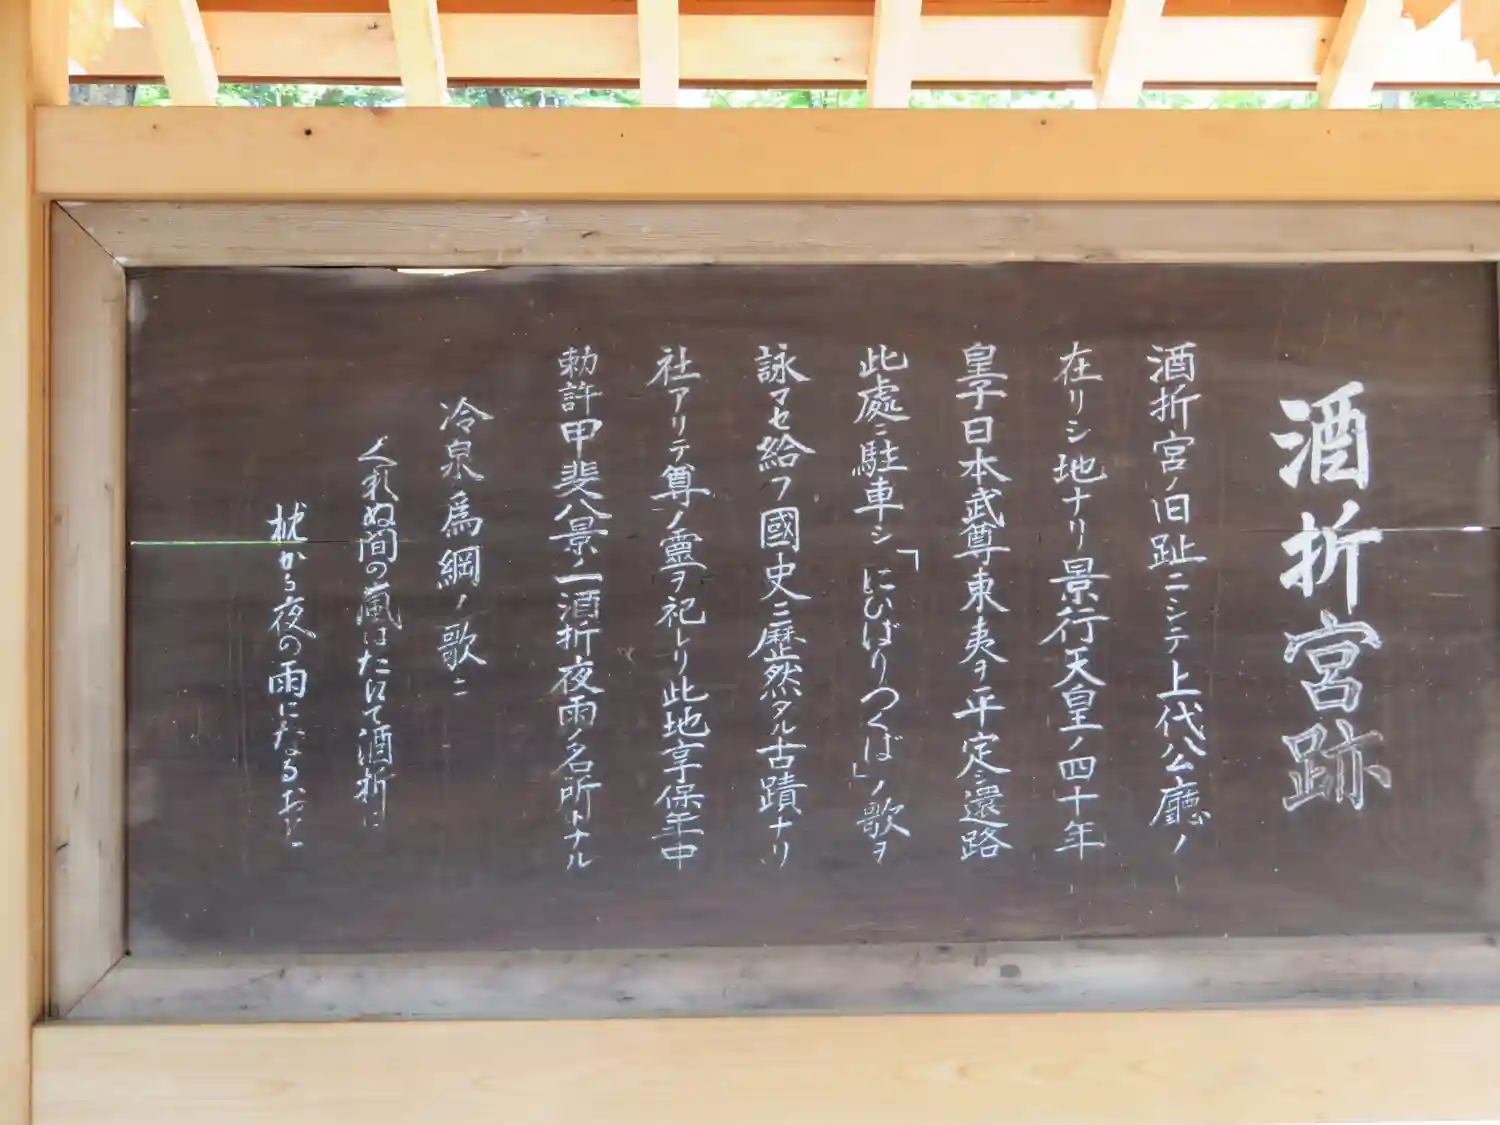 酒折宮跡
酒折宮ノ旧趾ニシテ上代公廳ノ
在リシ地ナリ景行天皇ノ四十年
皇子日本武尊東夷ヲ平定シ還路
此處ニ駐車シ「にひばりつくば」ノ歌ヲ
詠マセ給フ國史ニ歴然タル古蹟ナリ
社アリテ尊ノ靈ヲ祀レリ此地享保年中
勅許甲斐八景ノ一酒折夜雨ノ名所トナル
冷泉爲綱ノ歌ニ
くれぬ間の嵐はたにて酒折に
枕かる夜の雨になるおと